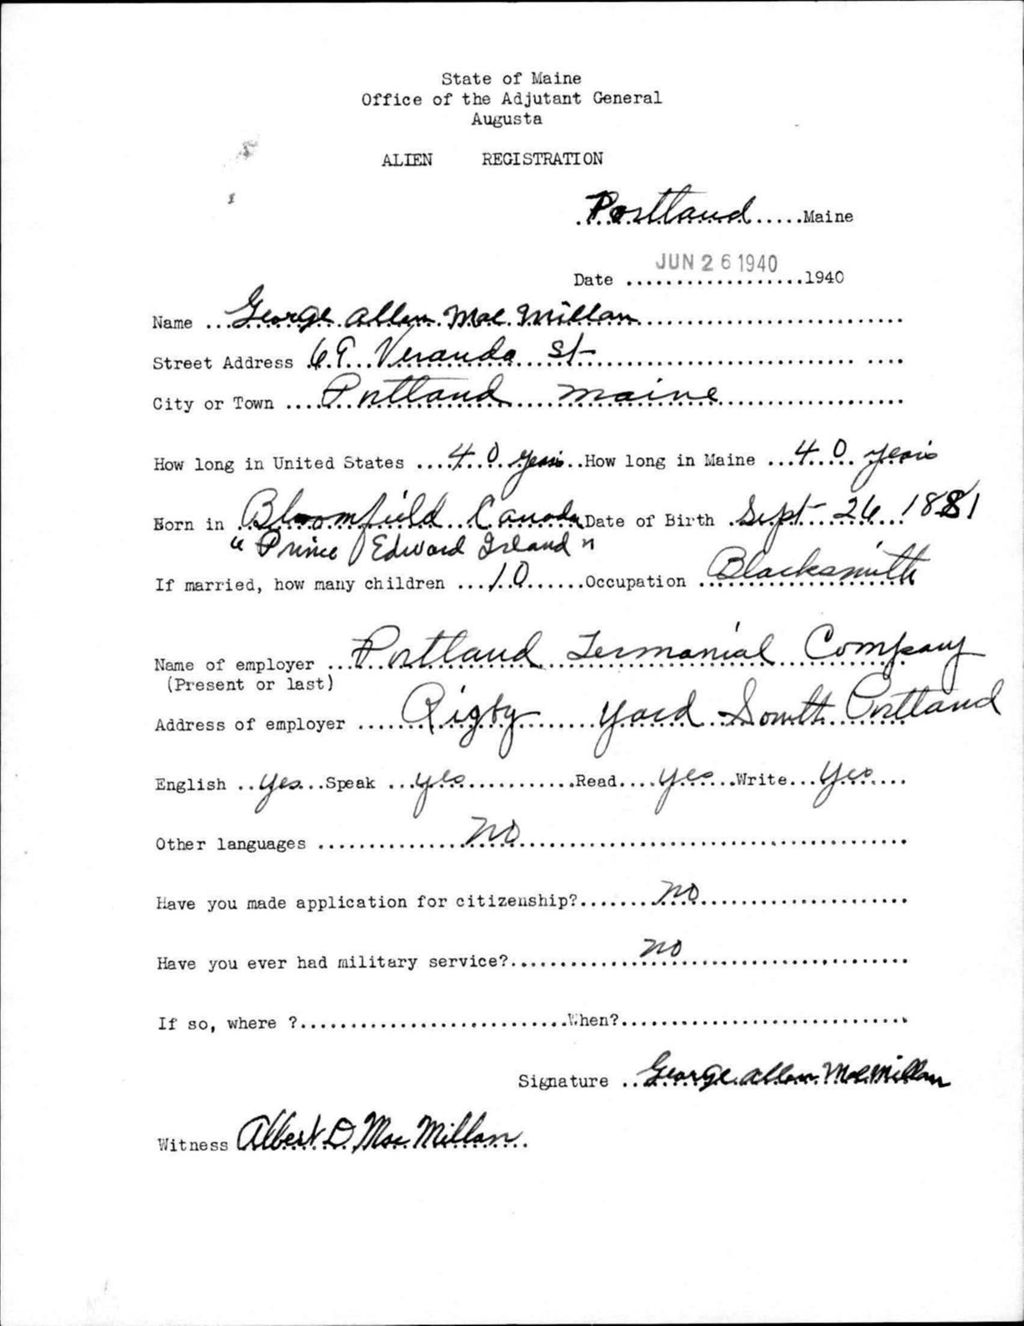 State of Maine
Office of the Adjutant General
Augusta
ALIEN REGISTRATION
Portland.....Maine
JUN 26 1940
Date ..................1940
Name ...George Allan Mac Millan...........................
Street Address 69 Veranda St...............................
City or Town ....Portland....Maine...................
How long in United States ....40 years..How long in Maine ...40 years
Born in .Bloomfield Canada Date of Birth .Sept 26 1881
"Prince Edward Island"
If married, how many children ...10......Occupation .Blacksmith
Name of employer ...Portland Termanial Company
(Present or last)
Address of employer .....Rigby yard South Portland
English ..yes...Speak ...yes............Read....yes...Write...yes....
Other languages ...............no.......................................
Have you made application for citizenship?........no.....................
Have you ever had military service?.............no.......................
If so, where ?...........................When?.............................
Signature ..George Allan MacMillan
Witness Albert D. Mac Millan.